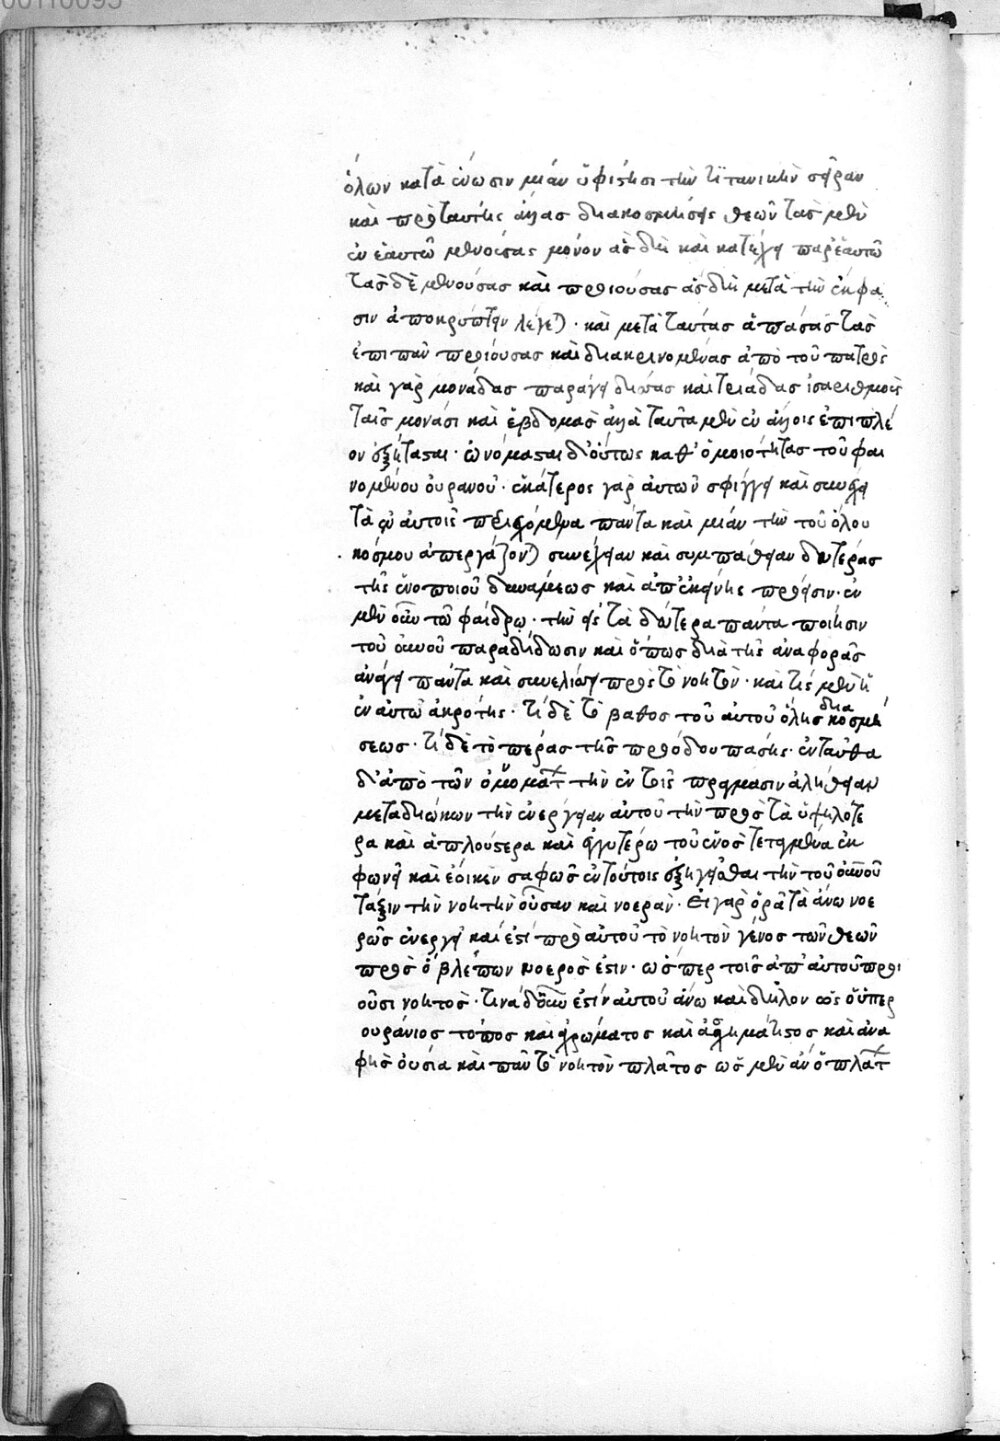 ὅλων κατὰ ἕνωσιν μίαν ὑφίστησι τὴν τιτανικὴν σειρὰν
καὶ πρὸ ταύτης ἄλλας διακοσμήσεις θεῶν τὰς μὲν
ἐν ἑαυτῶ μενούσας μόνον ἃς δὴ καὶ κατέχει παρ' ἑαυτῶ
τὰς δὲ μενούσας καὶ προιούσας ἃς δὴ μετὰ τὴν ἔκφα
σιν ἀποκρύπτειν λέγεται· καὶ μετὰ ταύτας ἁπάσας τὰς
ἐπιπᾶν προιούσας καὶ διακρινομένας ἀπὸ τοῦ πατρός
καὶ γὰρ μονάδας παράγει διττὰς καὶ τριάδας ἰσαρίθμοις
ταῖς μονάσι καὶ ἑβδομάς ἀλλὰ ταῦτα μὲν ἐν ἄλλοις ἐπιπλέ
ον ἐξήτασται· ὠνόμασται δ' οὕτως καθ' ὁμοιότητας τοῦ φαι
νομένου οὐρανοῦ· ἑκάτερος γὰρ αὐτῶν σφίγγει καὶ συνέχει
τὰ ἐν αὐτοῖς περιεχόμενα πάντα καὶ μίαν τὴν τοῦ ὅλου
κόσμου ἀπεργάζονται συνέχειαν καὶ συμπάθειαν δευτέρας
τῆς ἑνοποιοῦ δυνάμεως καὶ ἀπ' ἐκείνης πρόεισιν· ἐν
μὲν οὖν τῶ φαίδρῳ· τὴν εἰς τὰ δεύτερα πάντα ποίησιν
τοῦ οὐνοῦ παραδίδωσιν καὶ ὅπως διὰ τῆς ἀναφορᾶς
ἀνάγει πάντα καὶ συνελίσσει πρὸς τὸ νοητόν· καὶ τίς μὲν ἡ
ἐν αὐτῶ ἀκρότης· τί δὲ τὸ βάθος τοῦ αὐτοῦ ὅλης διακοσμή
σεως· τί δὲ τὸ πέρας τῆς προόδου πάσης· ἐνταῦθα
δ' ἀπὸ τῶν ὀνομάτ τὴν ἐν τοῖς πράγμασιν ἀλήθειαν
μεταδιώκων τὴν ἐνέργειαν αὐτοῦ τὴν πρὸς τὰ ὑψηλότε
ρα καὶ ἁπλούστερα καὶ ἐγγυτέρω τοῦ ἑνὸς τεταγμένα ἐκ
φωνεῖ καὶ ἔοικεν σαφῶς ἐν τούτοις ἐξηγεῖσθαι τὴν τοῦ οὐνοῦ
τάξιν τὴν νοητὴν οὖσαν καὶ νοεράν· Εἰ γὰρ ὁρᾶ τὰ ἄνω νοε
ρῶς ἐνεργεῖ καί ἐστι πρὸ αὐτοῦ τὸ νοητὸν γένος τῶν θεῶν
πρὸς ὃ βλέπων νοερός ἐστιν· ὥσπερ τοῖς ἀπ' αὐτοῦ προι
οῦσι νοητός· τίνα δ' οὖν ἐστὶν αὐτοῦ ἄνω καὶ δῆλον ὡς ὁ ὑπερ
ουράνιος τόπος καὶ ἀχρώματος καὶ ἀσχημάτιστος καὶ ἀνα
φὴς οὐσία καὶ πᾶν τὸ νοητὸν πλάτος ὡς μὲν ἂν ὁ πλάτ